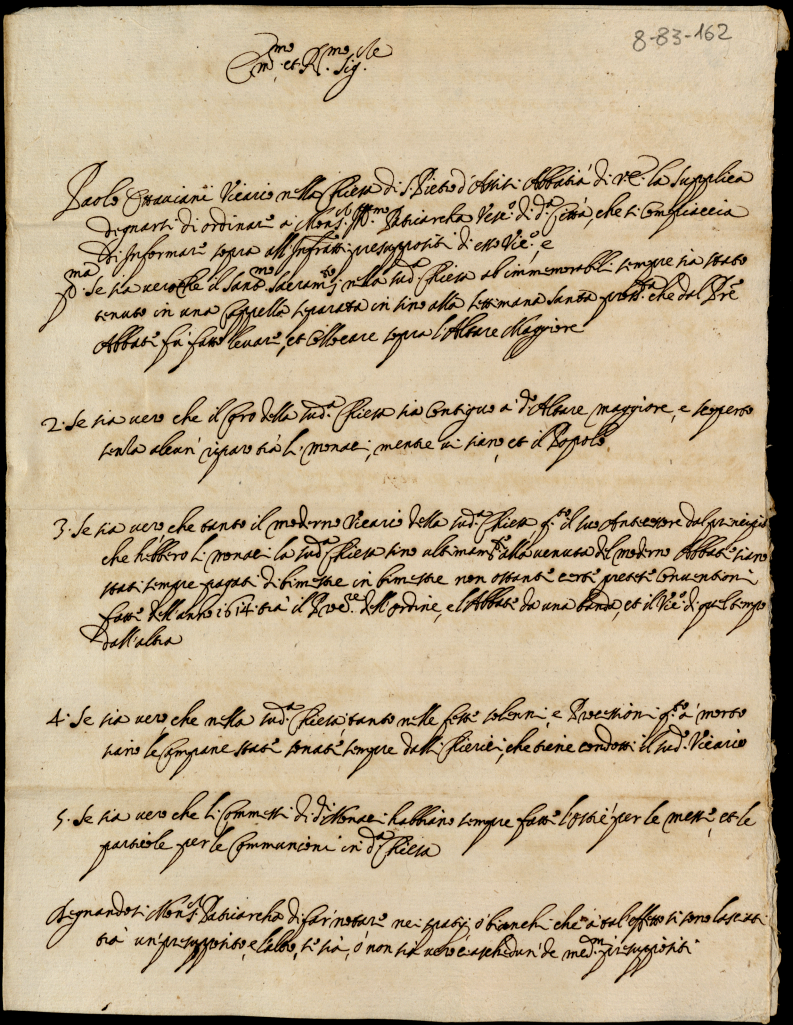 8-83-162
Em.mo et R.mo Sig.re
Paolo Ottaviani Vicario nella Chiesa di S. Pietro d'Assisi Abbatia di la supplica
degnarsi di ordinare a Mons.r Patriarcha Vesc.o di d.a Città, che si compiaccia
di informare sopra all'infratti presuppositi di esso Vic.o, e
p.ma Se sia vero che il Sant.mo Sacram.to nella sud.a Chiesa ab immemorabili sempre sia stato
tenuto in una Cappella separata in sino alla settimana santa pross.a che dal Pre
Abbate fù fatto levare, et collocare sopra l'Altare Maggiore
2. Se sia vero che il Coro della sud.a Chiesa sia contiguo à d.o Altare maggiore, e scoperto
senza alcun riparo trà li monaci, mentre vi siano, et il Popolo
3. Se sia vero che tanto il moderno Vicario della sud.a Chiesa q.to il suo Antecessore dal principio
che hebbero li monaci la sud.a Chiesa sino ultimam.te alla venuta del moderno Abbate siano
stati sempre pagati di bimestre in bimestre non ostante certe pretese Conventioni
fatte dell'anno 1614 trà il dell'ordine, e l'Abbate da una banda, et il Vic.o di quel tempo
dall'altra
4. Se sia vero che nella sud.a Chiesa tanto nelle feste solenni, e Processioni q.to à morto
siano le Campane state sonate sempre dalli Chierici, che tiene condotti il sud.o Vicario
5. Se sia vero che li Commessi di d.i Monaci habbino sempre fatte l'ostie per le messe, et le
particole per le Communioni in d.a Chiesa
Degnandosi Mons.r Patriarcha di far notare nei spatij ò bianchi che a tal'effetto si sono lasciati
trà un presupposito, e l'altro, se sia, ò non sia vero ciascheduni de med.mi presuppositi